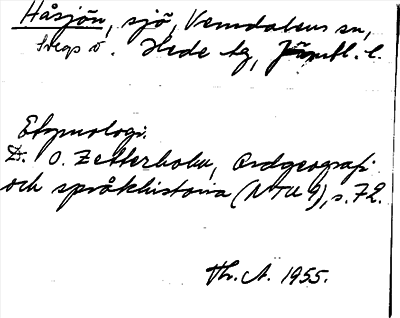 Håsjön, sjö, Vemdalens sn,
Svegs o. Hede tg, Jämtl. l.
Etymologi.
D. O. Zetterholm, Ordgeografi
och språkhistoria (NTU 9), s. 72.
Th. A. 1955.